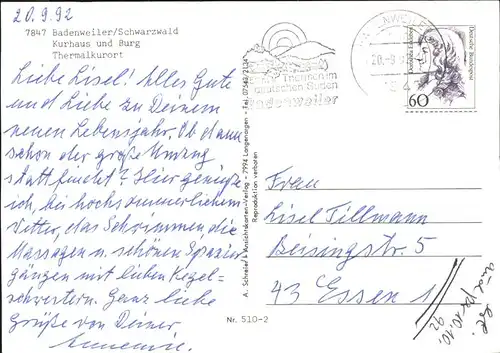 20.9.92
7847 Badenweiler/Schwarzwald
Kurhaus und Burg
Thermalkurort
Liebe Lisel! Alles Gute
und Liebe zu Deinem
neuen Lebensjahr. Ob dann
schon der große Umzug
stattfindet? Hier genieße
ich, bei hochsommerlichem
Wetter, das Schwimmen, die
Massagen u. schönen Spazier
gängen mit lieben Kegel-
schwestern. Ganz liebe
Grüße von Deiner
Annemie.
A. Schreiber Ansichtskarten-Verlag - 7994 Langenargen - Tel. 07543/2134
Reproduktion verboten
Nr. 510-2
im
deutschen Süden
Badenweiler
BADENWEILER
20.-9.
Deutsche Bundespost
60
Frau
Lisel Tillmann
Beisingstr. 5
43 Essen 1
10.10.
92